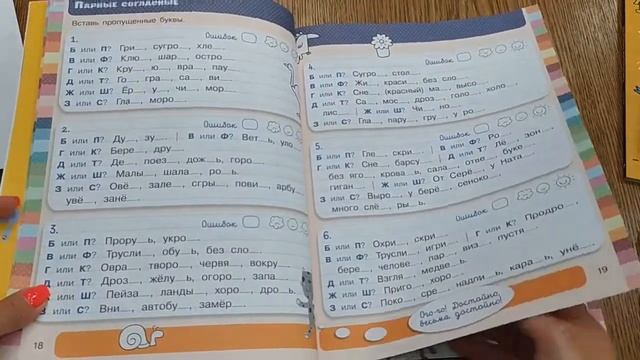 Парные согласные
Вставь пропущенные буквы.
1.
Ошибок
Б или П? Гри..., сугро..., хле...
В или Ф? Клю..., шар..., остро...
Г или К? Кру..., ю..., вра..., пау...
Д или Т? Го..., гра..., са..., ви...
Ж или Ш? Ёр..., у..., чи..., мор...
З или С? Гла..., моро...
2.
Ошибок
Б или П? Ду..., зу... | В или Ф? Вет...ь, уло...
Г или К? Бере..., дру...
Д или Т? Де..., поез..., дож...ь, горо...
Ж или Ш? Малы..., шала..., ро...ь.
З или С? Овё..., зале..., сгры..., пови..., арбу...,
увё..., занё...
3.
Ошибок
Б или П? Прору...ь, укро...
В или Ф? Трусли..., обу...ь, без сло...
Г или К? Овра..., творо..., черв..., вокру...
Д или Т? Дроз..., жёлу...ь, огоро..., запа...
или Ш? Пейза..., ланды..., хоро..., дро...ь.
З или С? Вни..., автобу..., замёр...
18
4.
Ошибок
Б или П? Сугро..., стол...
В или Ф? Жи..., краси..., без сло...
Г или К? Сне..., (красный) ма..., высо...
Д или Т? Са..., мос..., дроз..., голо..., холо...
лис... | Ж или Ш? Чи..., но...
З или С? Гла..., пару..., гру..., у ро...
5.
Ошибок
Б или П? Гле..., скри... | В или Ф? Ро...
Г или К? Сне..., барсу... | Д или Т? Лё..., зон...
без яго..., крова...ь, сала..., отве..., буке...
гиган... | Ж или Ш? От Серё..., у Ната...
З или С? Выро..., у берё..., сеноко...
много слё..., ры...ь.
6.
Ошибок
Б или П? Охри..., скри...
В или Ф? Трусли..., игри... | Г или К? Продро...,
бере..., челове..., пар..., виз..., пустя...
Д или Т? Взгля..., медве...ь.
Ж или Ш? Приго..., хоро...
З или С? Поко..., сре..., надпи...ь, кара...ь, унё...
Ого-го! Достойно,
весьма достойно!
19